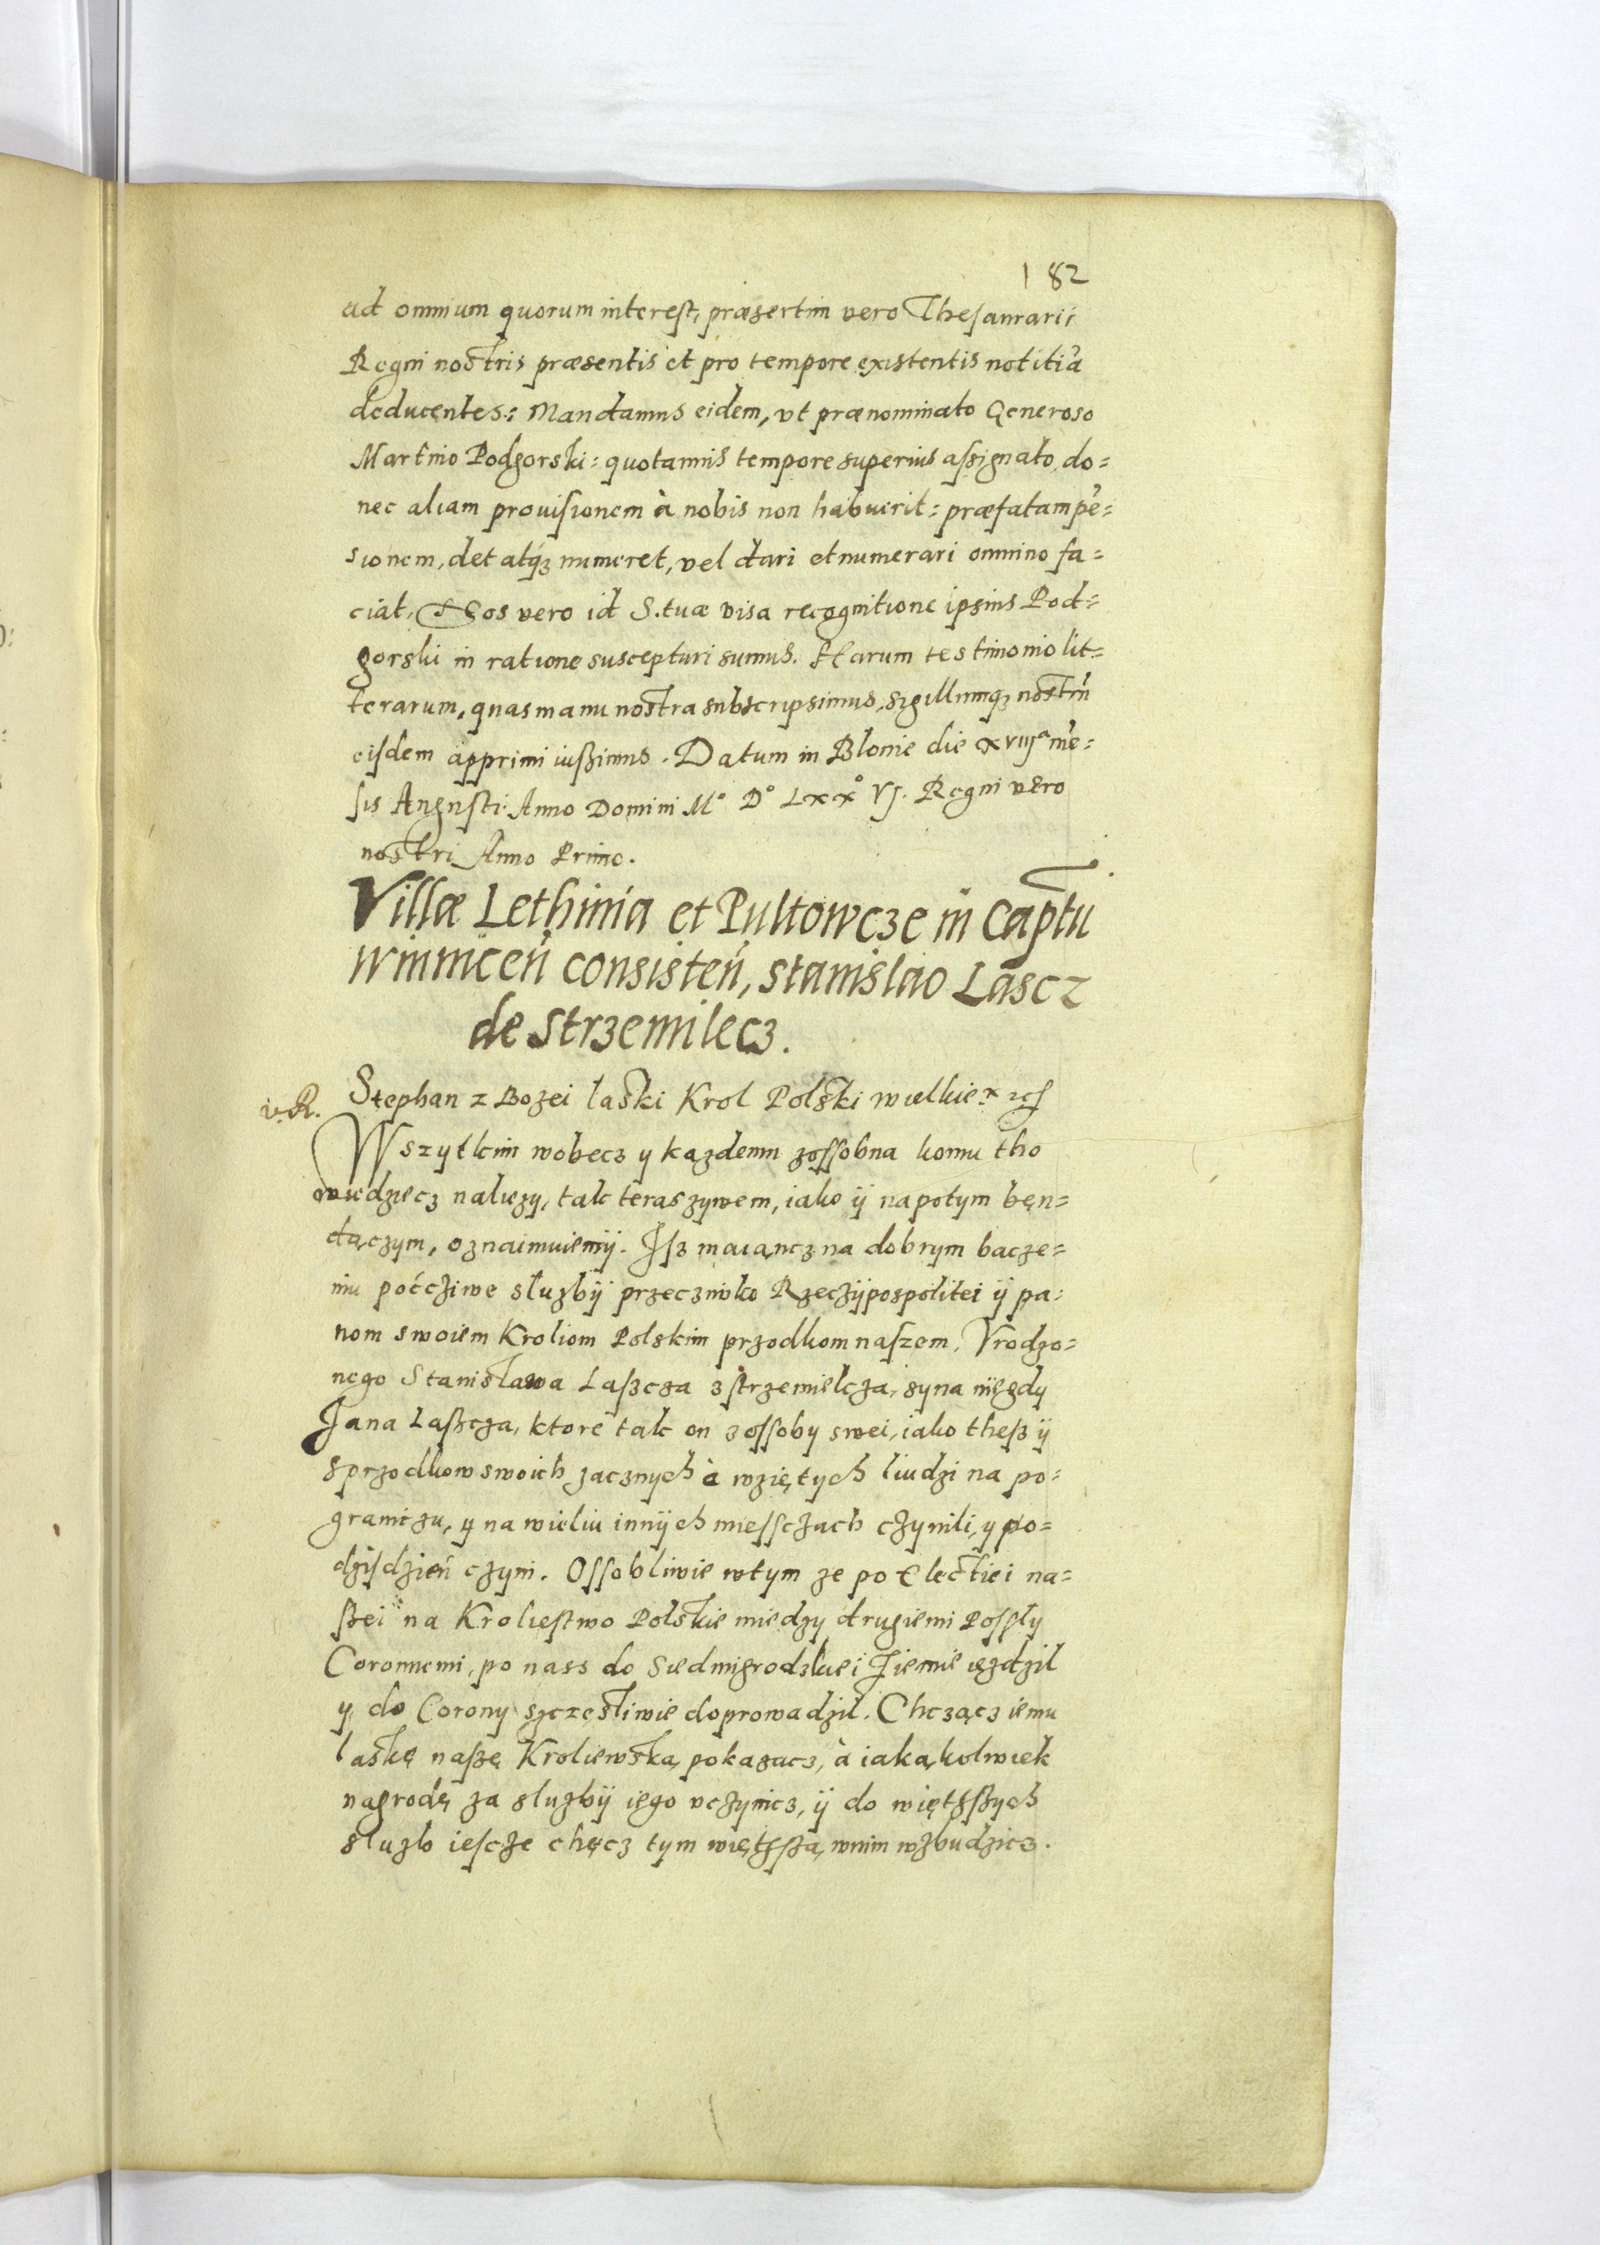 182
ad omnium quorum interest, præsertim vero Thesaurarii
Regni nostris præsentis et pro tempore existentis notitiã
deducentes: Mandamus eidem, vt prænominato Generoso
Martino Podgorski: quotannis tempore superius assignato, do=
nec aliam prouisionem à nobis non habuerit: præfatam pẽ=
sionem, det atq3 numeret, vel dari et numerari omnino fa=
ciat, Nos vero id S. tuæ visa recognitione ipsius Pod=
gorski in ratione suscepturi sumus. Harum testimonio lit=
terarum, quas manu nostra subscripsimus, sigillumq3 nostrũ
eisdem apprimi iussimus. Datum in Blonie die xviijª mẽ=
sis Augusti Anno Domini M° D° Lxx° Vj. Regni vero
nostri Anno Primo.
Villæ Lethinia et Pultowcze in Captũ
winniceń consisteń, Stanislao Lascz
de Strzemilecz.
v. R.
Stephan z Bozei laski Krol Polski wielkie
Wszytkim wobecz y kazdemu zossobna komu tho
wiedziecz nalezy, tak teraszywem, iako ÿ napotym bęn=
dączym, oznaimuiemÿ. Jsz maiąncz na dobrym bacze=
niu poćcziwe słuzbÿ przecziwko Rzeczÿpospolitei ÿ pa=
nom swoiem Kroliom Polskim przodkom naszem, Vrodzo=
nego Stanisława Laszcza z strzemielcza, syna niegdy
Jana Laszcza, ktore tak on zossoby swei, iako thesz ÿ
sprzodkow swoich zacznych à wziętych liudzi na po=
graniczu, y na wieliu innÿch miessczach czynili, y po=
dzisdzień czyni. Ossobliwie wtym ze po Electiei na=
szei na Kroliestwo Polskie miedzy drugiemi Posły
Coronnemi, po nass do Siedmigrodzkiei Ziemie iezdził
y do Corony szczęsliwie doprowadził. Chcząc iemu
laskę naszę Kroliewską pokazacz, à iakąkolwiek
nagrodę za sluzbÿ iego vczynicz, ÿ do więtszych
sluzb iescze chęcz tym więtszą, wnim wzbudzicz.